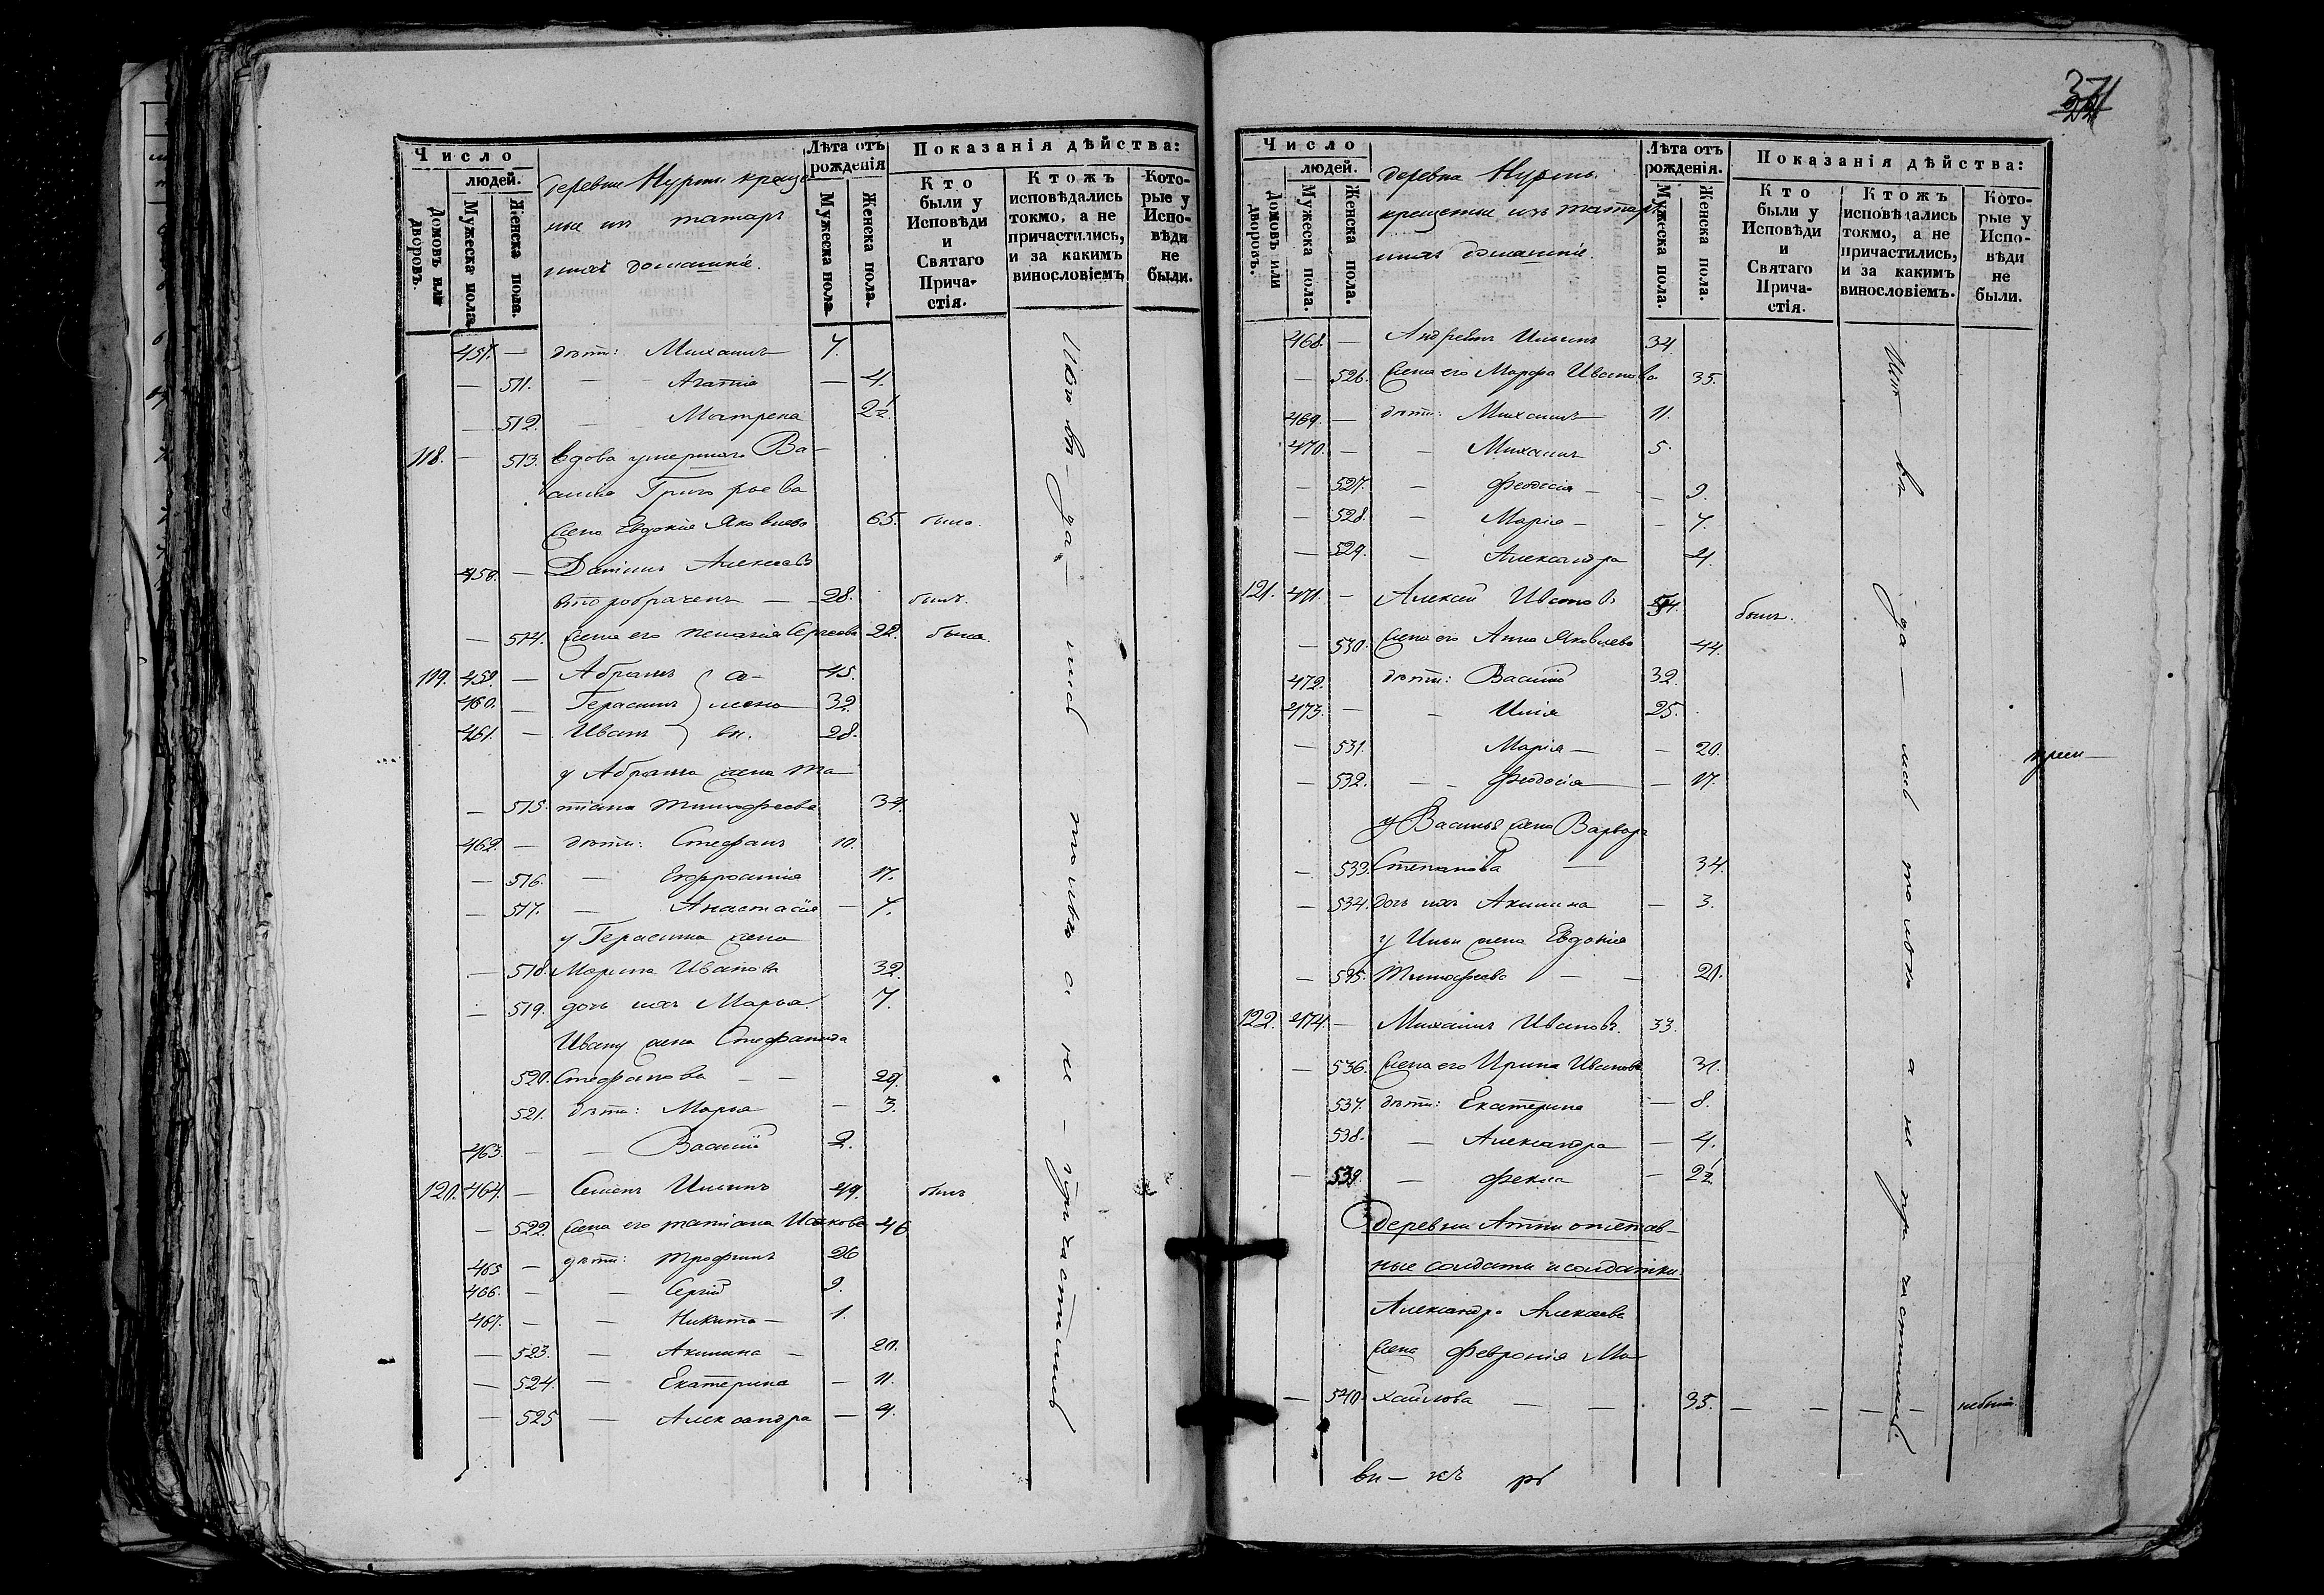 371
Число
людей.
Домовъ или дворовъ.
Мужеска пола.
Женска пола.
деревни Нурми креще
ные изъ татаръ
ихъ домашніе.
Лѣта отъ рожденія
Мужеска пола.
Женска пола.
Показанія дѣйства:
Кто были у Исповѣди и Святаго Причастія.
Ктожъ исповѣдались токмо, а не причастились, и за какимъ винословіемъ
Которые у Исповѣди не были.
457. — дѣти: Михаилъ 7.
— 511. — Агапія — 4.
— 512. — Матрена 2½
118. — 513. Вдова умершаго Ва-
силія Григорьева
жена Евдокія Яковлева 65. была.
458. — Даніилъ Алексѣевъ
второбраченъ — 28. былъ.
— 514. жена его Пелагія Сергѣева 22. была.
119. 459. — Абрамъ } а- 45.
460. — Герасимъ } 32
461. — Иванъ } вы. 28.
у Абрама жена Та
— 515. тіана Тимофѣева 34.
462. — дѣти: Стефанъ 10.
— 516. — Евфросинія 17.
— 517. — Анастасія — 7.
у Герасима жена
— 518. Марина Иванова 32
— 519. дочь ихъ Марья. 7.
Ивану жена Стефанида
520. Стефанова — — 29.
521. дѣти: Марья — 3.
463. — — Василій 2.
120. 464. — Семенъ Ильинъ 49. былъ
— 522. жена его Татіана Исакова 46
465 — дѣти: Трофимъ 26
466. — — Сергій 9.
467. — — Никита — 1.
— 523. — Акилина — 20.
— 524. — Екатерина — 11.
— 525 — Александра — 4.
а не причастились
Число
людей.
Домовъ или дворовъ.
Мужеска пола.
Женска пола.
деревна Нурмы.
крещеные изъ татаръ
ихъ домашніе.
Лѣта отъ рожденія.
Мужеска пола.
Женска пола.
Показанія дѣйства:
Кто были у Исповѣди и Святаго Причастія.
Ктожъ исповѣдались токмо, а не причастились, и за какимъ винословіемъ.
Которые у Исповѣди не были.
468. — Андреянъ Ильинъ 34.
— 526. жена его Марфа Иванова 35.
469. — дѣти: Михаилъ — 11.
470. — — Михаилъ 5.
— 527. — Феодосія — — 9.
— 528. — Марія — — 7.
— 529. — Александра 4.
121. 471. — Алексѣй Ивановъ 54. былъ.
— 530. жена его Анна Яковлева 44.
472. дѣти: Василій 32.
473. — — Илія 25.
— 531. Марія — — 20.
— 532. — Феодосія — 17.
у Василья жена Варвара
— 533. Степанова — 34.
— 534. дочь ихъ Акилина — 3.
у Ильи жена Евдокія
— 535. Тимофѣева — — 21.
122. 474. — Михаилъ Ивановъ. 33.
— 536. жена его Ирина Иванова 31.
537. дѣти: Екатерина — 8.
538. — Александра — 4.
— 539. — Фекла — 2½
а не причастились.
Деревни Атни отстав-
ные солдаты и солдатки.
Александра Алексѣева
жена Февронія Ми-
— 540. хайлова — — 35. — — — — не была